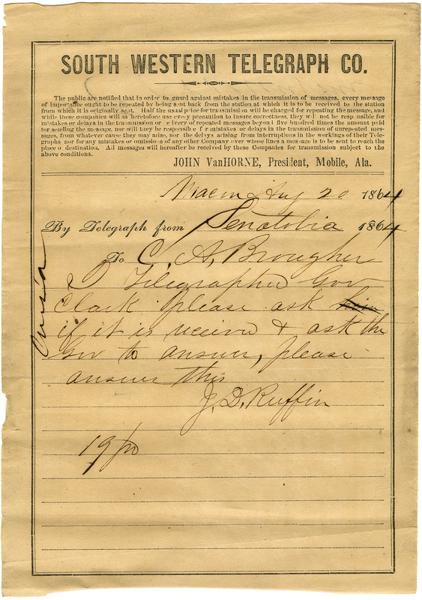 SOUTH WESTERN TELEGRAPH CO.
The public are notified that in order to guard against mistakes in the transmission of messages, every message
of importance ought to be repeated by being sent back from the station at which it is to be received to the station
from which it is originally sent. Half the usual price for transmission will be charged for repeating the message, and
while these companies will as heretofore use every precaution to insure correctness, they will not be responsible for
mistakes or delays in the transmission or delivery of repeated messages beyond five hundred times the amount paid
for sending the message, nor will they be responsible for mistakes or delays in the transmission of unrepeated messages,
from whatever cause they may arise, nor for delays arising from interruptions in the workings of their Telegraphs
nor for any mistakes or omissions of any other Company over whose lines a message is to be sent to reach the
place of destination. All messages will hereafter be received by these Companies for transmission subject to the
above conditions.
JOHN VanHORNE, President, Mobile, Ala.
Macon Aug 20 1864
By Telegraph from Senatobia 1864
To C. A. Brougher
I Telegraphed Gov
Clark please ask him
if it is received & ask the
Gov to answer, please
answer this
J. D. Ruffin
19